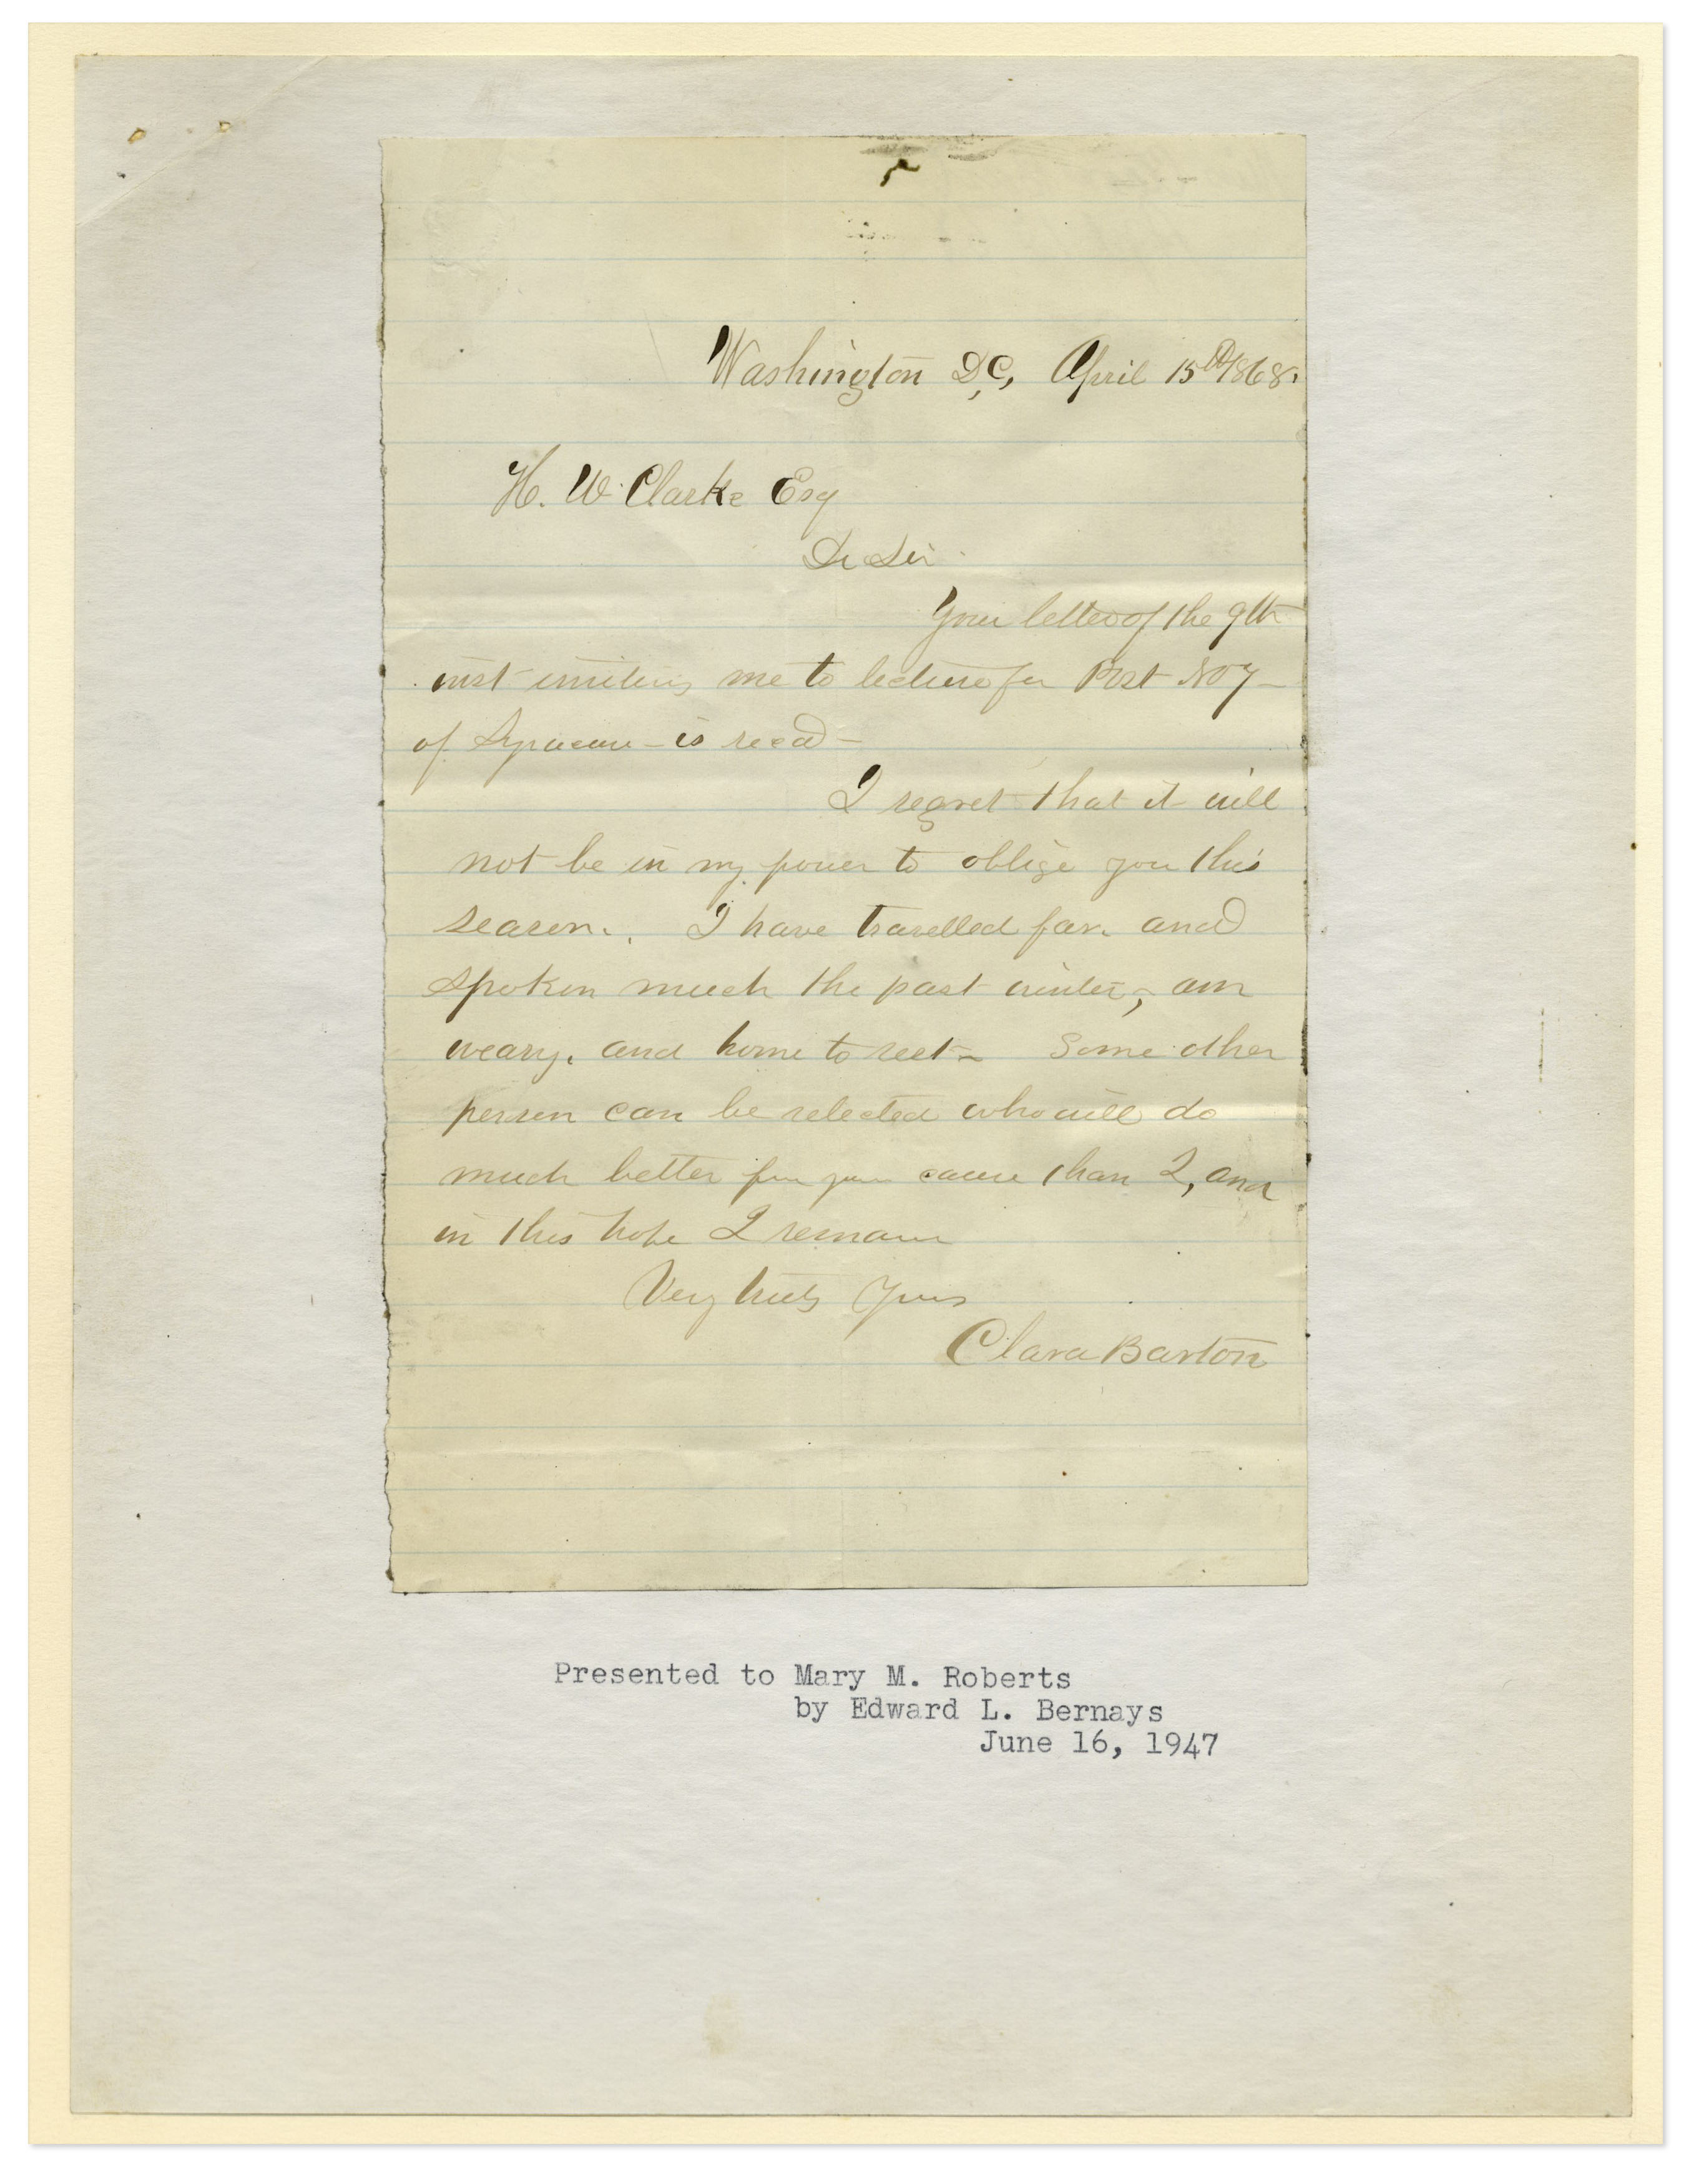 Washington D,C, April 15th 1868.
H. W. Clarke Esq
Dr Sir
Your letter of the 9th
inst inviting me to lecture for Post No 7 –
of Syracuse – is recd –
I regret that it will
not be in my power to oblige you this
season. I have travelled far and
spoken much the past winter, am
weary, and home to rest – Some other
person can be selected who will do
much better for your cause than I, and
in this hope I remain
Very truly Yours
Clara Barton
Presented to Mary M. Roberts
by Edward L. Bernays
June 16, 1947